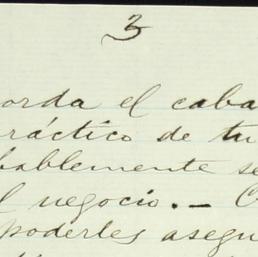 3
orda el caba
ráctico de tu
bablemente se
l negocio. — C
poderles asegu